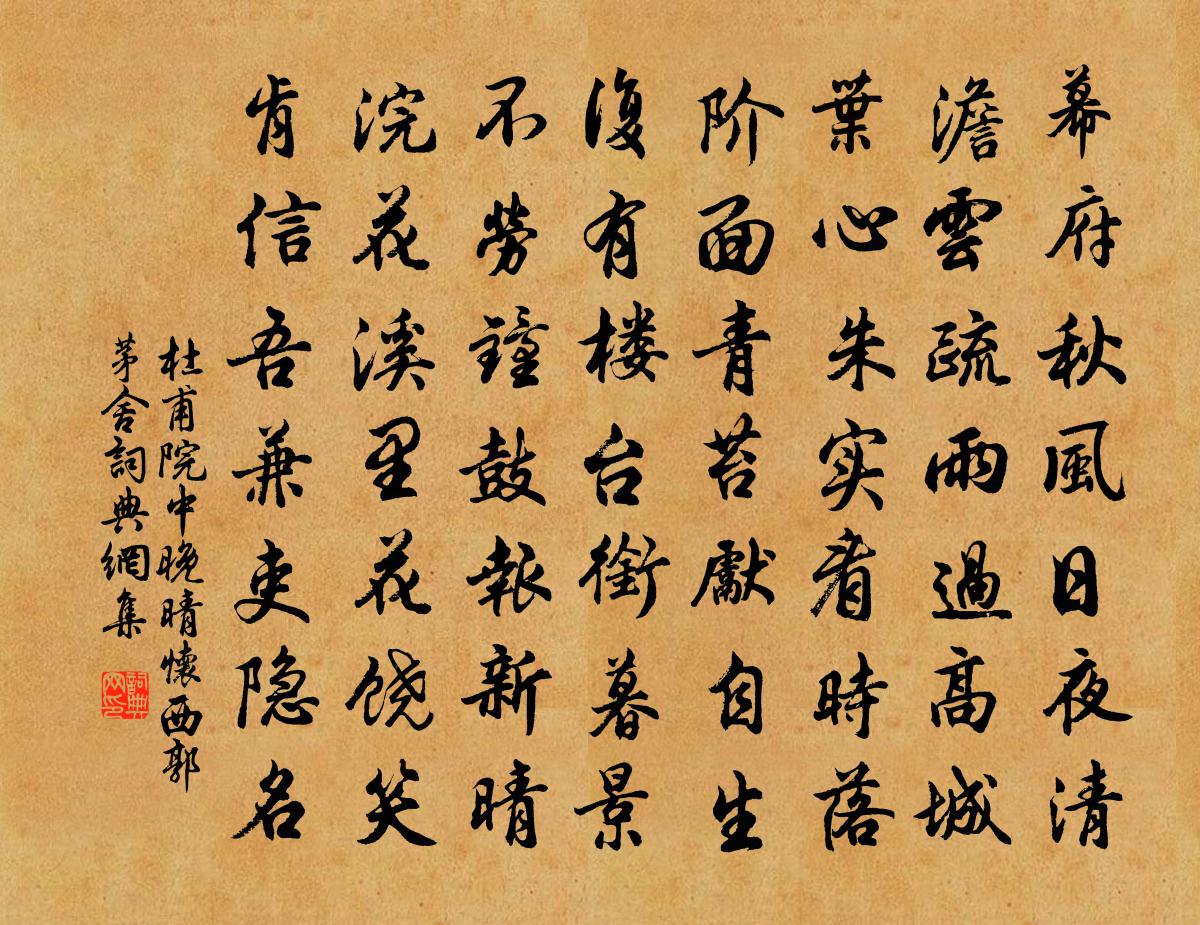 幕府秋風日夜清
澹雲疏雨過高城
葉心朱实看時落
阶面青苔獻自生
復有楼台銜暮景
不勞鐘鼓報新晴
浣花溪里花饶笑
肯信吾兼吏隐名
杜甫院中晚晴懷西郭
茅舍詞典網集
詞典
网印